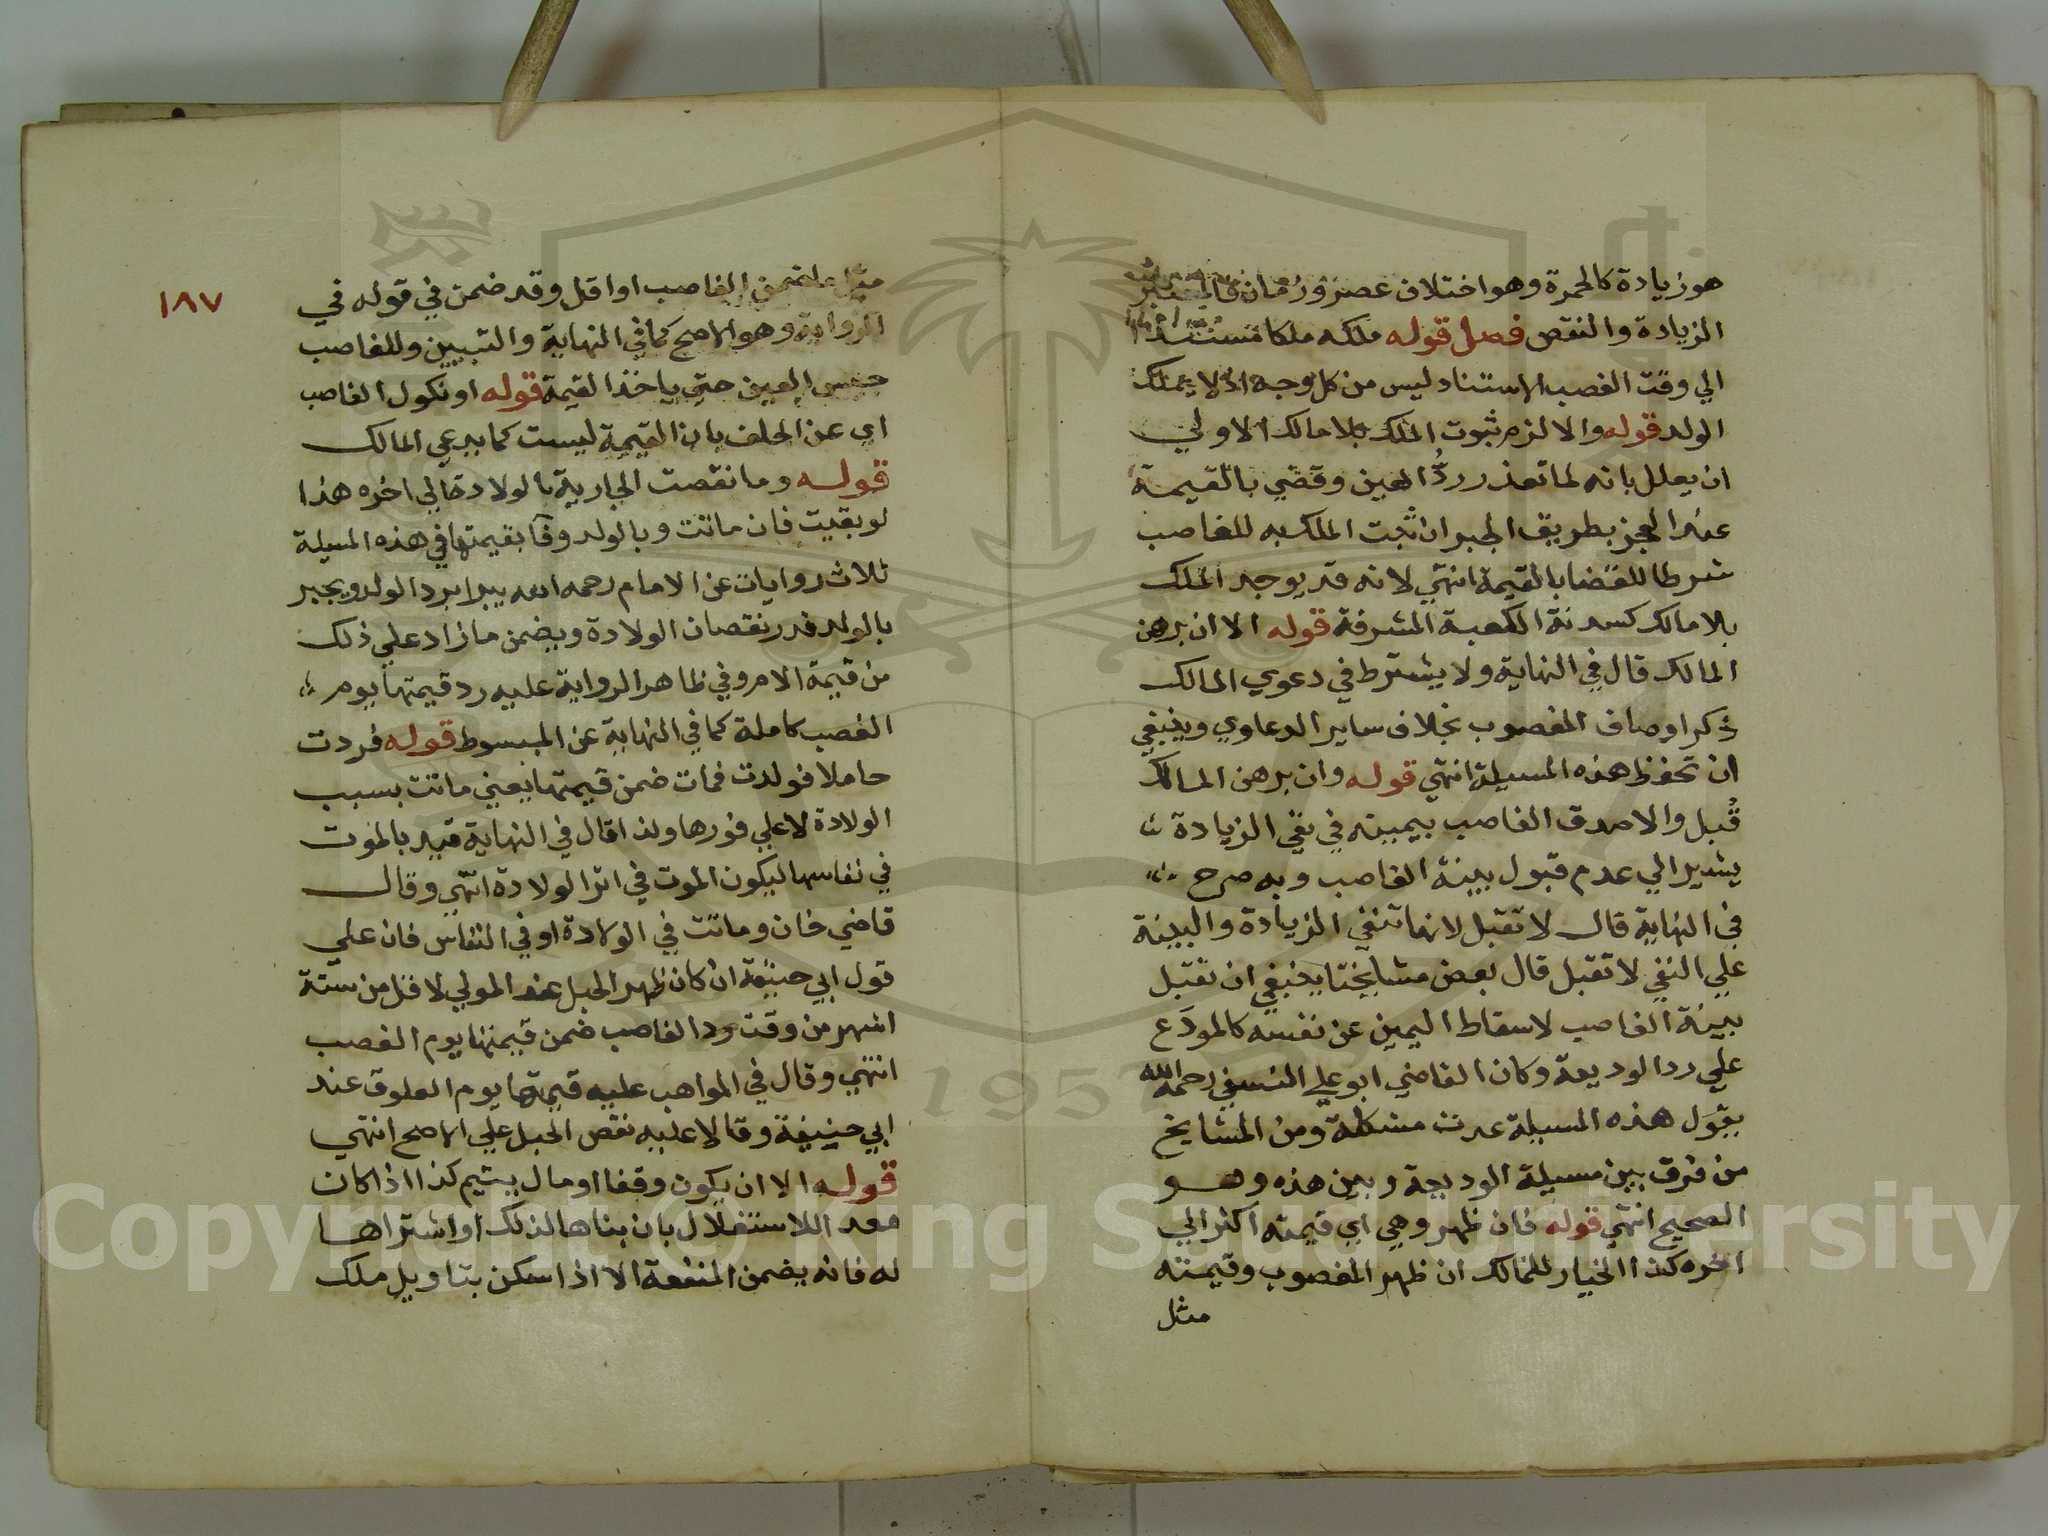 هو زيادة كالحمرة وهو اختلاف عصر وزمان فالمعتبر
الزيادة والنقص فصل قوله ملكه ملكا مستندا
الي وقت الغصب الاستناد ليس من كل وجه اذ لا يملك
الولد قوله والا لزم ثبوت الملك بلا مالك الاولي
ان يعلل بانه لما تعذر رد العين وقضي بالقيمة
عند العجز بطريق الجبران ثبت الملك به للغاصب
شرطا للقضا بالقيمة انتهي لانه قد يوجد الملك
بلا مالك كسدنة الكعبة المشرفة قوله الا ان برهن
المالك قال في النهاية ولا يشترط في دعوي المالك
ذكر اوصاف المغصوب بخلاف ساير الدعاوي وينبغي
ان تحفظ هذه المسيلة انتهي قوله وان برهن المالك
قُبل والا صدق الغاصب بيمينه في نفي الزيادة
يشير الي عدم قبول بينة الغاصب وبه صرح
في النهاية قال لا تقبل لانها تنفي الزيادة والبينة
علي النفي لا تقبل قال بعض مشايخنا ينبغي ان تقبل
بينة الغاصب لاسقاط اليمين عن نفسه كالمودَع
علي رد الوديعة وكان القاضي ابو علي النسفي رحمه الله
يقول هذه المسيلة عدت مشكلة ومن المشايخ
من فرق بين مسيلة الوديعة وبين هذه وهو
الصحيح انتهي قوله فان ظهر وهي اي قيمته اكثر الي
اخره كذا الخيار للمالك ان ظهر المغصوب وقيمته
مثل
١٨٧
مثل ما ضمن الغاصب او اقل وقد ضمن في قوله في
الرواية وهو الاصح كما في النهاية والتبيين وللغاصب
حبس العين حتي ياخذ القيمة قوله او نكول الغاصب
اي عن الحلف بان القيمة ليست كما يدعي المالك
قوله وما نقصت الجارية بالولادة الي اخره هذا
لو بقيت فان ماتت وبالولد وفا بقيمتها في هذه المسيلة
ثلاث روايات عن الامام رحمه الله يبرا برد الولد ويجبر
بالولد قدر نقصان الولادة ويضمن ما زاد علي ذلك
من قيمة الام وفي ظاهر الرواية عليه رد قيمتها يوم
الغصب كاملة كما في النهاية عن المبسوط قوله فردت
حاملا فولدت فمات ضمن قيمتها يعني ماتت بسبب
الولادة لا علي فورها ولذا قال في النهاية قيد بالموت
في نفاسها ليكون الموت في اثر الولادة انتهي وقال
قاضي خان وماتت في الولادة او في النفاس فان علي
قول ابي حنيفة ان كان ظهر الحبل عند المولي لاقل من ستة
اشهر من وقت رد الغاصب ضمن قيمتها يوم الغصب
انتهي وقال في المواهب عليه قيمتها يوم العلوق عند
ابي حنيفة وقالا عليه نقص الحبل علي الاصح انتهي
قوله الا ان يكون وقفا او مال يتيم كذا اذا كان
معد اللاستغلال بان بناها لذلك او اشتراها
له فانه يضمن المنفعة الا اذا سكن بتاويل ملك
Copyright © King Saud University
1957